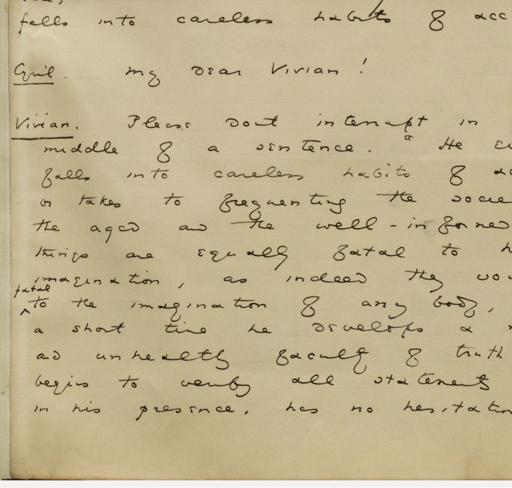 falls into careless habits of acc
Cyril. My dear Vivian!
Vivian. Please dont interrupt in
middle of a sentence. "He
falls into careless habits of ac
or takes to frequenting the socie
the aged and the well-informed
things are equally fatal to h
imagination, as indeed they wou
fatal
to the imagination of any body,
a short time he develops a
ad unhealthy faculty of truth
begins to verify all statements
in his presence, has no hesitation